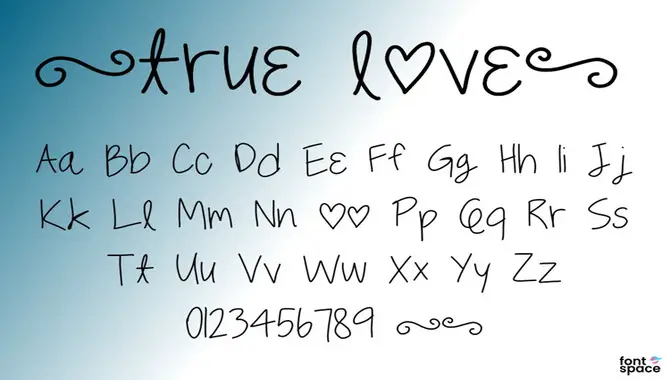 true l♡ve
Aa Bb Cc Dd Ee Ff Gg Hh Ii Jj
Kk Ll Mm Nn ♡♡ Pp Qq Rr Ss
Tt Uu Vv Ww Xx Yy Zz
0123456789
font
space